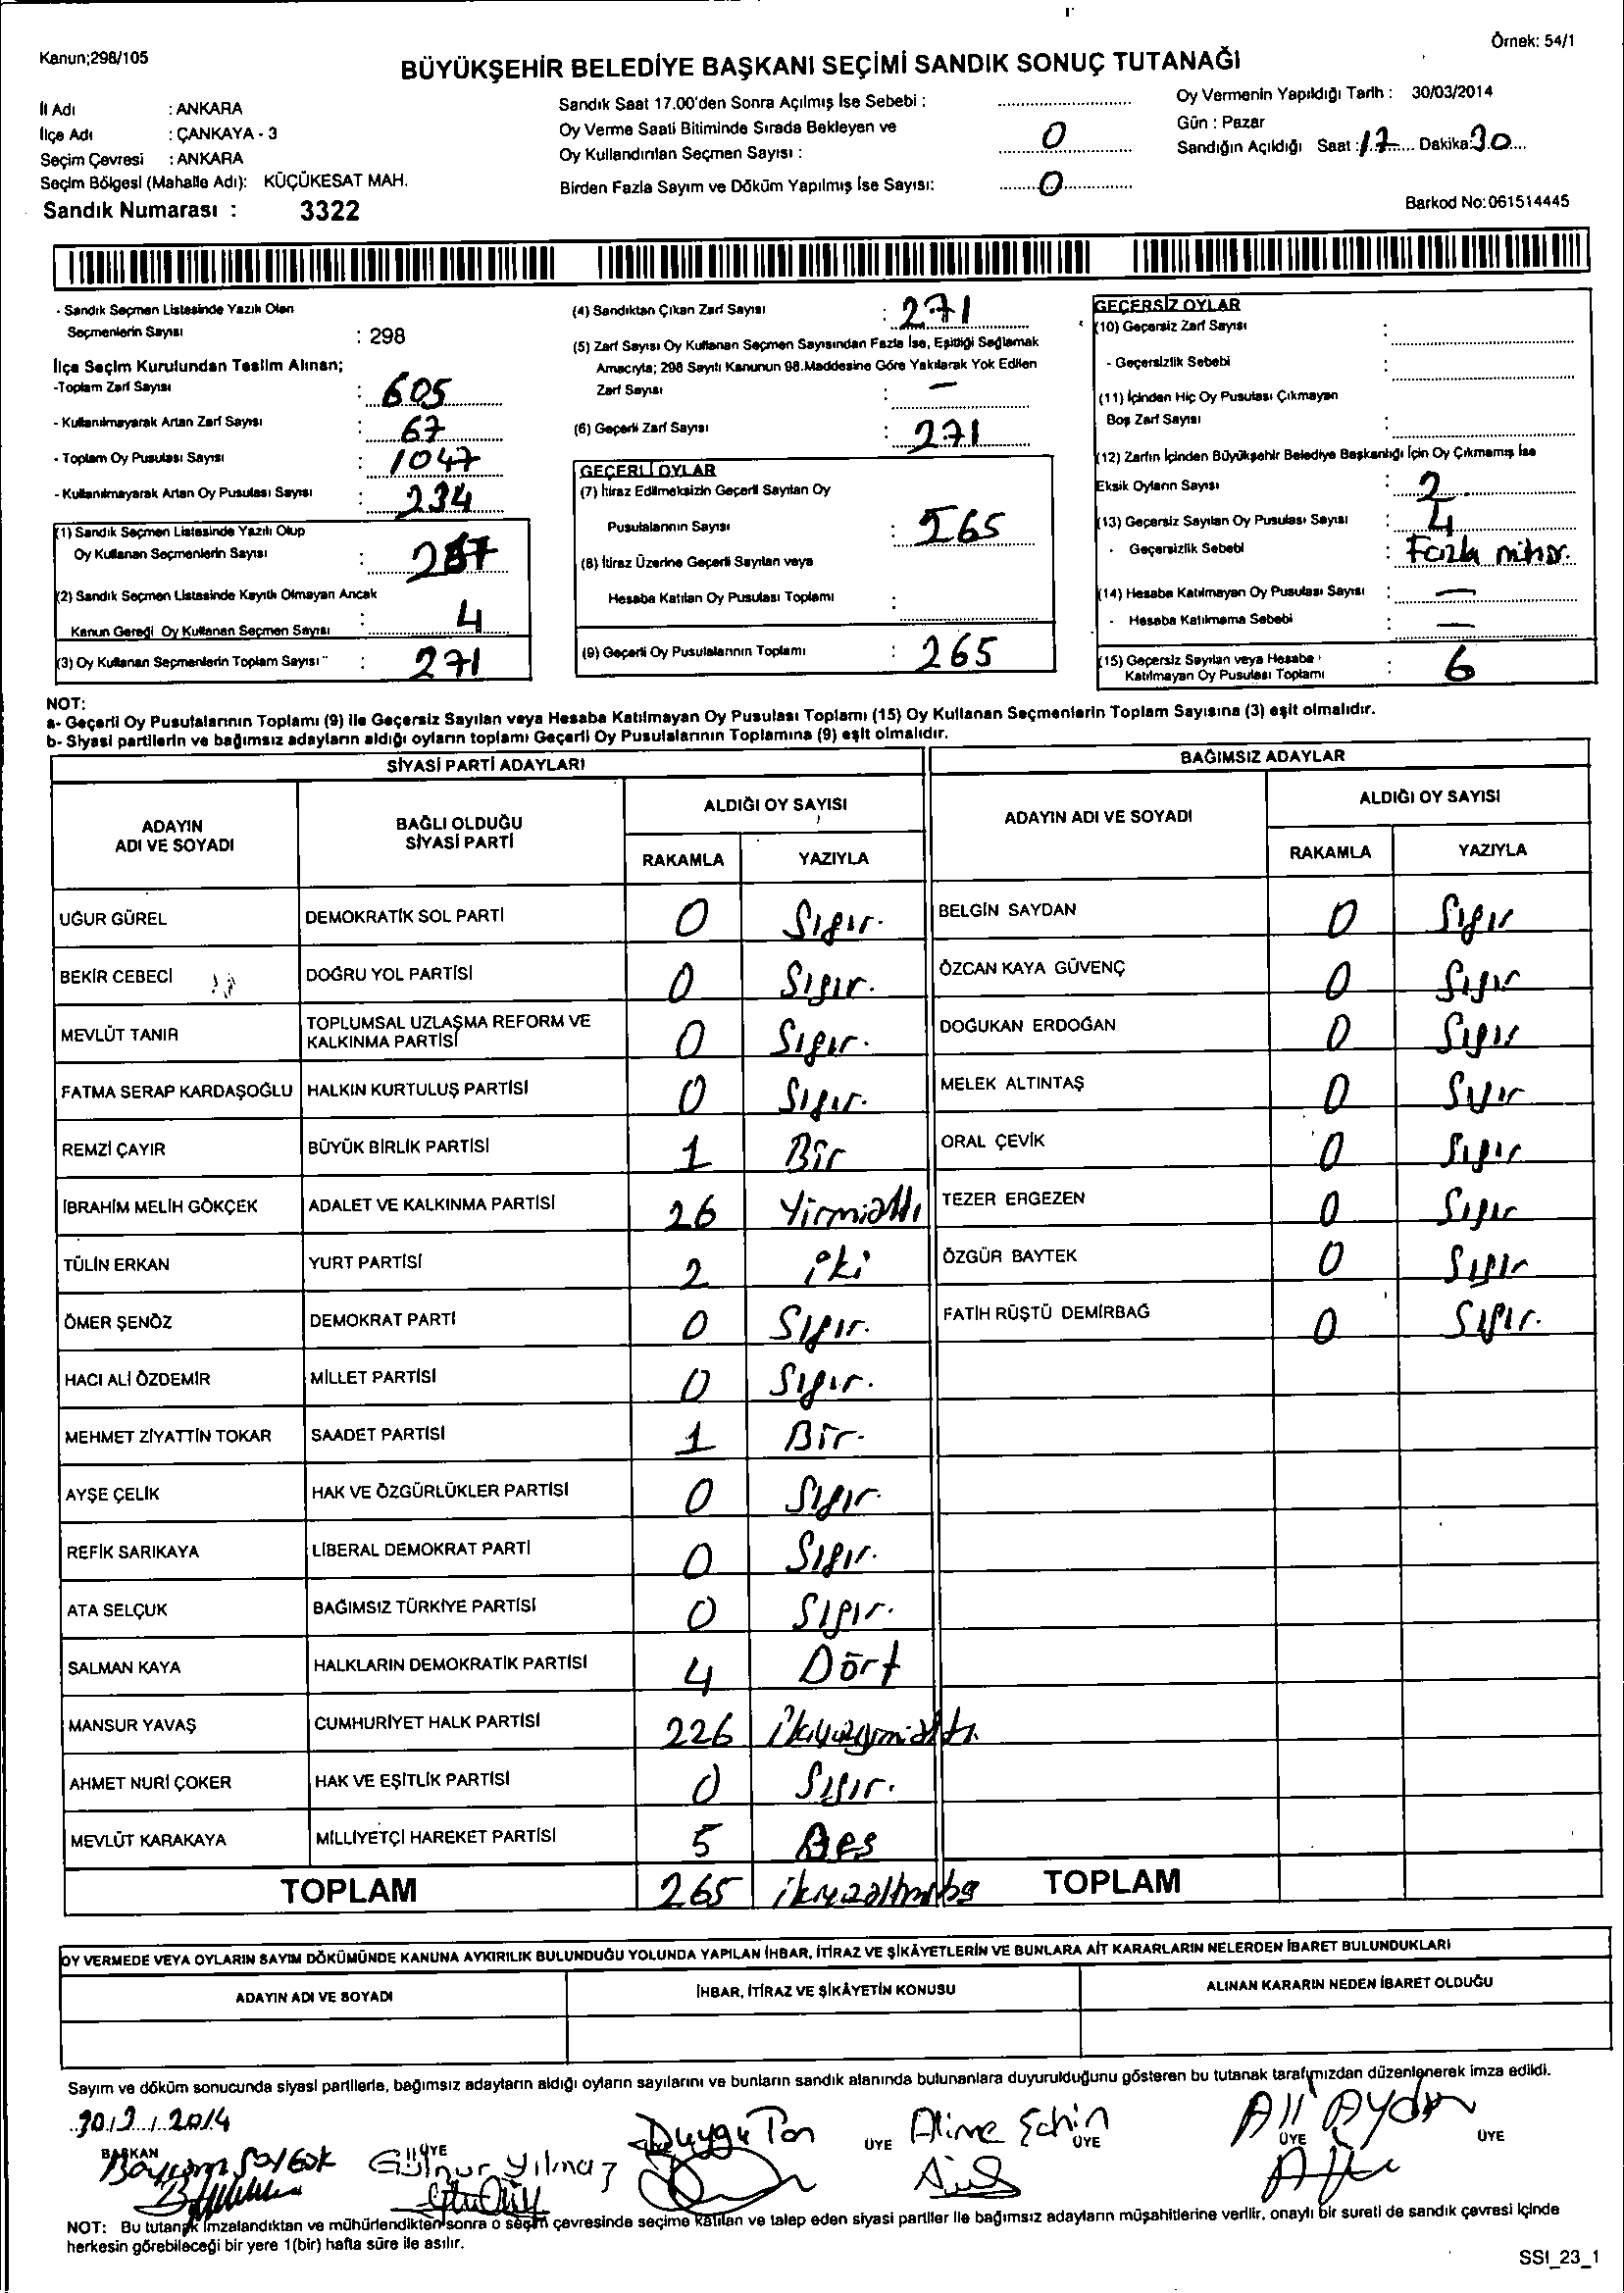 Kanun;298/105
Örnek: 54/1
BÜYÜKŞEHİR BELEDİYE BAŞKANI SEÇİMİ SANDIK SONUÇ TUTANAĞI
İl Adı : ANKARA
İlçe Adı : ÇANKAYA - 3
Seçim Çevresi : ANKARA
Seçim Bölgesi (Mahalle Adı): KÜÇÜKESAT MAH.
Sandık Numarası : 3322
Sandık Saat 17.00'den Sonra Açılmış İse Sebebi :
Oy Verme Saati Bitiminde Sırada Bekleyen ve
Oy Kullandırılan Seçmen Sayısı : 0
Birden Fazla Sayım ve Döküm Yapılmış İse Sayısı: 0
Oy Vermenin Yapıldığı Tarih : 30/03/2014
Gün : Pazar
Sandığın Açıldığı Saat : 17 Dakika: 30
Barkod No:061514445
- Sandık Seçmen Listesinde Yazılı Olan
Seçmenlerin Sayısı : 298
İlçe Seçim Kurulundan Teslim Alınan;
-Toplam Zarf Sayısı : 605
- Kullanılmayarak Artan Zarf Sayısı : 67
- Toplam Oy Pusulası Sayısı : 1047
- Kullanılmayarak Artan Oy Pusulası Sayısı : 234
(1) Sandık Seçmen Listesinde Yazılı Olup
Oy Kullanan Seçmenlerin Sayısı : 267
(2) Sandık Seçmen Listesinde Kayıtlı Olmayan Ancak
Kanun Gereği Oy Kullanan Seçmen Sayısı : 4
(3) Oy Kullanan Seçmenlerin Toplam Sayısı : 271
(4) Sandıktan Çıkan Zarf Sayısı : 271
(5) Zarf Sayısı Oy Kullanan Seçmen Sayısından Fazla İse, Eşitliği Sağlamak
Amacıyla; 298 Sayılı Kanunun 98.Maddesine Göre Yakılarak Yok Edilen
Zarf Sayısı : —
(6) Geçerli Zarf Sayısı : 271
GEÇERLİ OYLAR
(7) İtiraz Edilmeksizin Geçerli Sayılan Oy
Pusulalarının Sayısı : 265
(8) İtiraz Üzerine Geçerli Sayılan veya
Hesaba Katılan Oy Pusulası Toplamı :
(9) Geçerli Oy Pusulalarının Toplamı : 265
GEÇERSİZ OYLAR
(10) Geçersiz Zarf Sayısı :
- Geçersizlik Sebebi :
(11) İçinden Hiç Oy Pusulası Çıkmayan
Boş Zarf Sayısı :
(12) Zarfın İçinden Büyükşehir Belediye Başkanlığı İçin Oy Çıkmamış İse
Eksik Oyların Sayısı : 2
(13) Geçersiz Sayılan Oy Pusulası Sayısı : 4
- Geçersizlik Sebebi : Fazla mühür.
(14) Hesaba Katılmayan Oy Pusulası Sayısı : —
- Hesaba Katılmama Sebebi : —
(15) Geçersiz Sayılan veya Hesaba
Katılmayan Oy Pusulası Toplamı : 6
NOT:
a- Geçerli Oy Pusulalarının Toplamı (9) ile Geçersiz Sayılan veya Hesaba Katılmayan Oy Pusulası Toplamı (15) Oy Kullanan Seçmenlerin Toplam Sayısına (3) eşit olmalıdır.
b- Siyasi partilerin ve bağımsız adayların aldığı oyların toplamı Geçerli Oy Pusulalarının Toplamına (9) eşit olmalıdır.
SİYASİ PARTİ ADAYLARI
ADAYIN ADI VE SOYADI BAĞLI OLDUĞU SİYASİ PARTİ ALDIĞI OY SAYISI
RAKAMLA YAZIYLA
UĞUR GÜREL DEMOKRATİK SOL PARTİ 0 Sıfır.
BEKİR CEBECİ DOĞRU YOL PARTİSİ 0 Sıfır.
MEVLÜT TANIR TOPLUMSAL UZLAŞMA REFORM VE KALKINMA PARTİSİ 0 Sıfır.
FATMA SERAP KARDAŞOĞLU HALKIN KURTULUŞ PARTİSİ 0 Sıfır.
REMZİ ÇAYIR BÜYÜK BİRLİK PARTİSİ 1 Bir
İBRAHİM MELİH GÖKÇEK ADALET VE KALKINMA PARTİSİ 26 Yirmialtı
TÜLİN ERKAN YURT PARTİSİ 2 iki
ÖMER ŞENÖZ DEMOKRAT PARTİ 0 Sıfır.
HACI ALİ ÖZDEMİR MİLLET PARTİSİ 0 Sıfır.
MEHMET ZİYATTİN TOKAR SAADET PARTİSİ 1 Bir.
AYŞE ÇELİK HAK VE ÖZGÜRLÜKLER PARTİSİ 0 Sıfır.
REFİK SARIKAYA LİBERAL DEMOKRAT PARTİ 0 Sıfır.
ATA SELÇUK BAĞIMSIZ TÜRKİYE PARTİSİ 0 Sıfır.
SALMAN KAYA HALKLARIN DEMOKRATİK PARTİSİ 4 Dört
MANSUR YAVAŞ CUMHURİYET HALK PARTİSİ 226
AHMET NURİ ÇOKER HAK VE EŞİTLİK PARTİSİ 0 Sıfır.
MEVLÜT KARAKAYA MİLLİYETÇİ HAREKET PARTİSİ 5 Beş
TOPLAM 265
BAĞIMSIZ ADAYLAR
ADAYIN ADI VE SOYADI ALDIĞI OY SAYISI
RAKAMLA YAZIYLA
BELGİN SAYDAN 0 Sıfır
ÖZCAN KAYA GÜVENÇ 0 Sıfır
DOĞUKAN ERDOĞAN 0 Sıfır
MELEK ALTINTAŞ 0 Sıfır
ORAL ÇEVİK 0 Sıfır
TEZER ERGEZEN 0 Sıfır
ÖZGÜR BAYTEK 0 Sıfır
FATİH RÜŞTÜ DEMİRBAĞ 0 Sıfır.
TOPLAM
OY VERMEDE VEYA OYLARIN SAYIM DÖKÜMÜNDE KANUNA AYKIRILIK BULUNDUĞU YOLUNDA YAPILAN İHBAR, İTİRAZ VE ŞİKÂYETLERİN VE BUNLARA AİT KARARLARIN NELERDEN İBARET BULUNDUKLARI
ADAYIN ADI VE SOYADI İHBAR, İTİRAZ VE ŞİKÂYETİN KONUSU ALINAN KARARIN NEDEN İBARET OLDUĞU
Sayım ve döküm sonucunda siyasi partilerle, bağımsız adayların aldığı oyların sayılarını ve bunların sandık alanında bulunanlara duyurulduğunu gösteren bu tutanak tarafımızdan düzenlenerek imza edildi.
30/3/2014
BAŞKAN ÜYE ÜYE ÜYE ÜYE ÜYE
Gülnur Yılmaz Duygu Alime Şahin Ali Aydın
NOT: Bu tutanak imzalandıktan ve mühürlendikten sonra o seçim çevresinde seçime katılan ve talep eden siyasi partiler ile bağımsız adayların müşahitlerine verilir, onaylı bir sureti de sandık çevresi içinde
herkesin görebileceği bir yere 1(bir) hafta süre ile asılır.
SSI_23_1